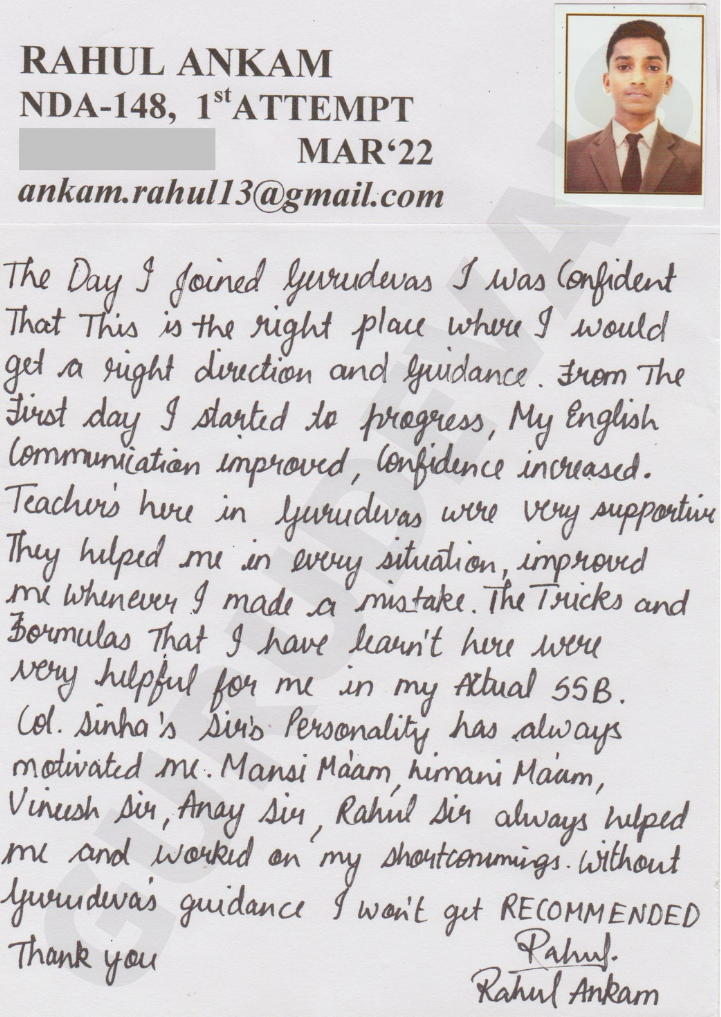 RAHUL ANKAM
NDA-148, 1st ATTEMPT
MAR‘22
ankam.rahul13@gmail.com
The Day I Joined Gurudevas I was Confident
That This is the right place where I would
get a right direction and Guidance. From The
First day I started to progress, My English
Communication improved, Confidence increased.
Teacher's here in Gurudevas were very supportive
They helped me in every situation, improved
me whenever I made a mistake. The Tricks and
Formulas That I have learn't here were
very helpful for me in my Actual SSB.
Col. Sinha's Sir's Personality has always
motivated me. Mansi Ma'am, himani Ma'am,
Vineesh Sir, Anay Sir, Rahul Sir always helped
me and worked on my shortcommings. Without
Gurudeva's guidance I won't get RECOMMENDED
Thank you
Rahul.
Rahul Ankam
GURUDEVAS